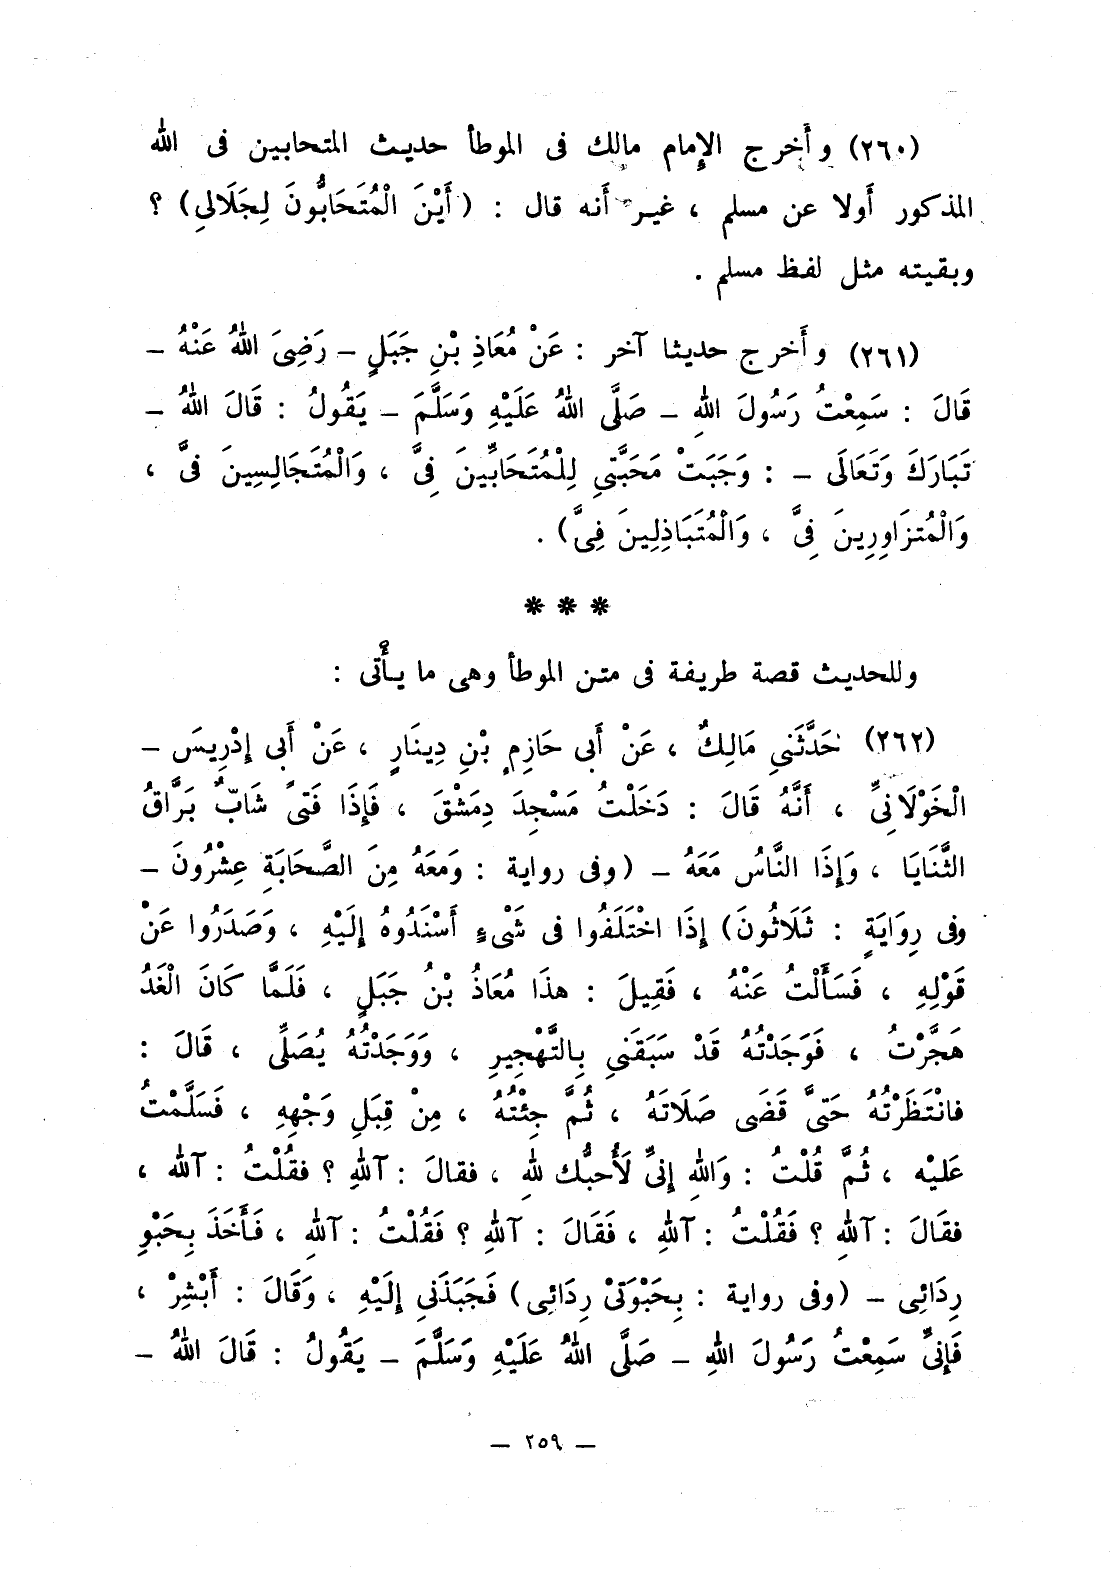 (٢٦٠) وأَخرج الإِمام مالك فى الموطأ حديث المتحابين فى الله
المذكور أَولا عن مسلم ، غير أَنه قال : (أَيْنَ الْمُتَحَابُّونَ لِجَلَالِي) ؟
وبقيته مثل لفظ مسلم .
(٢٦١) وأَخرج حديثا آخر : عَنْ مُعَاذِ بْنِ جَبَلٍ – رَضِىَ اللهُ عَنْهُ –
قَالَ : سَمِعْتُ رَسُولَ اللهِ – صَلَّى اللهُ عَلَيْهِ وَسَلَّمَ – يَقُولُ : قَالَ اللهُ –
تَبَارَكَ وَتَعَالَى – : وَجَبَتْ مَحَبَّتِي لِلْمُتَحَابِّينَ فِىَّ ، وَالْمُتَجَالِسِينَ فىَّ ،
وَالْمُتزَاوِرِينَ فِىَّ ، وَالْمُتَبَاذِلِينَ فِىَّ) .
* * *
وللحديث قصة طريفة فى متن الموطأ وهى ما يأْتى :
(٢٦٢) حَدَّثَنِي مَالِكٌ ، عَنْ أَبى حَازِمِ بْنِ دِينَارٍ ، عَنْ أَبى إِدْرِيسَ –
الْخَوْلَانىِّ ، أَنَّهُ قَالَ : دَخَلْتُ مَسْجِدَ دِمَشْقَ ، فَإِذَا فَتىً شَابٌّ بَرَّاقُ
الثَّنَايَا ، وَإِذَا النَّاسُ مَعَهُ – (وفى رواية : وَمَعَهُ مِنَ الصَّحَابَةِ عِشْرُونَ –
وفى رِوَايَةٍ : ثَلَاثُونَ) إِذَا اخْتَلَفُوا فى شَىْءٍ أَسْنَدُوهُ إِلَيْهِ ، وَصَدَرُوا عَنْ
قَوْلِهِ ، فَسَأَلْتُ عَنْهُ ، فَقِيلَ : هذَا مُعَاذُ بْنُ جَبَلٍ ، فَلَمَّا كَانَ الْغَدُ
هَجَّرْتُ ، فَوَجَدْتُهُ قَدْ سَبَقَنىِ بِالتَّهْجِيرِ ، وَوَجَدْتُهُ يُصَلِّى ، قَالَ :
فانْتَظَرْتُهُ حَتىَّ قَضَى صَلَاتَهُ ، ثُمَّ جِئْتُهُ ، مِنْ قِبَلِ وَجْهِهِ ، فَسَلَّمْتُ
عَليْه ، ثُمَّ قُلْتُ : وَاللهِ إِنىِّ لَأُحبُّك للهِ ، فقالَ : آللهِ ؟ فقُلْتُ : آلله ،
فقَالَ : آللهِ ؟ فَقُلْتُ : آللهِ ، فَقَالَ : آللهِ ؟ فَقُلْتُ : آللهِ ، فَأَخَذَ بِحَبْوِ
رِدَائِى – (وفى رواية : بِحَبْوَتَىْ رِدَائِى) فَجَبَذَنىِ إِلَيْهِ ، وَقَالَ : أَبْشِرْ ،
فَإِنىِّ سَمِعْتُ رَسُولَ اللهِ – صَلَّى اللهُ عَلَيْهِ وَسَلَّمَ – يَقُولُ : قَالَ اللهُ –
– ٢٥٩ –